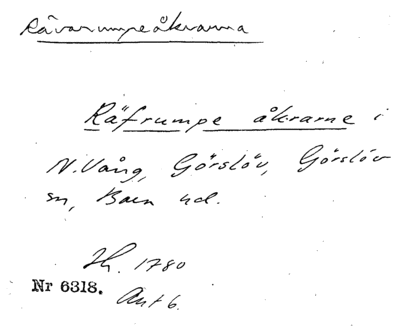 Rävarumpeåkrarna
Räfrumpe åkrarne i
N. Vång, Görslöv, Görslöv
sn, Bara hd.
1780
Nr 6318.
Akt 6.